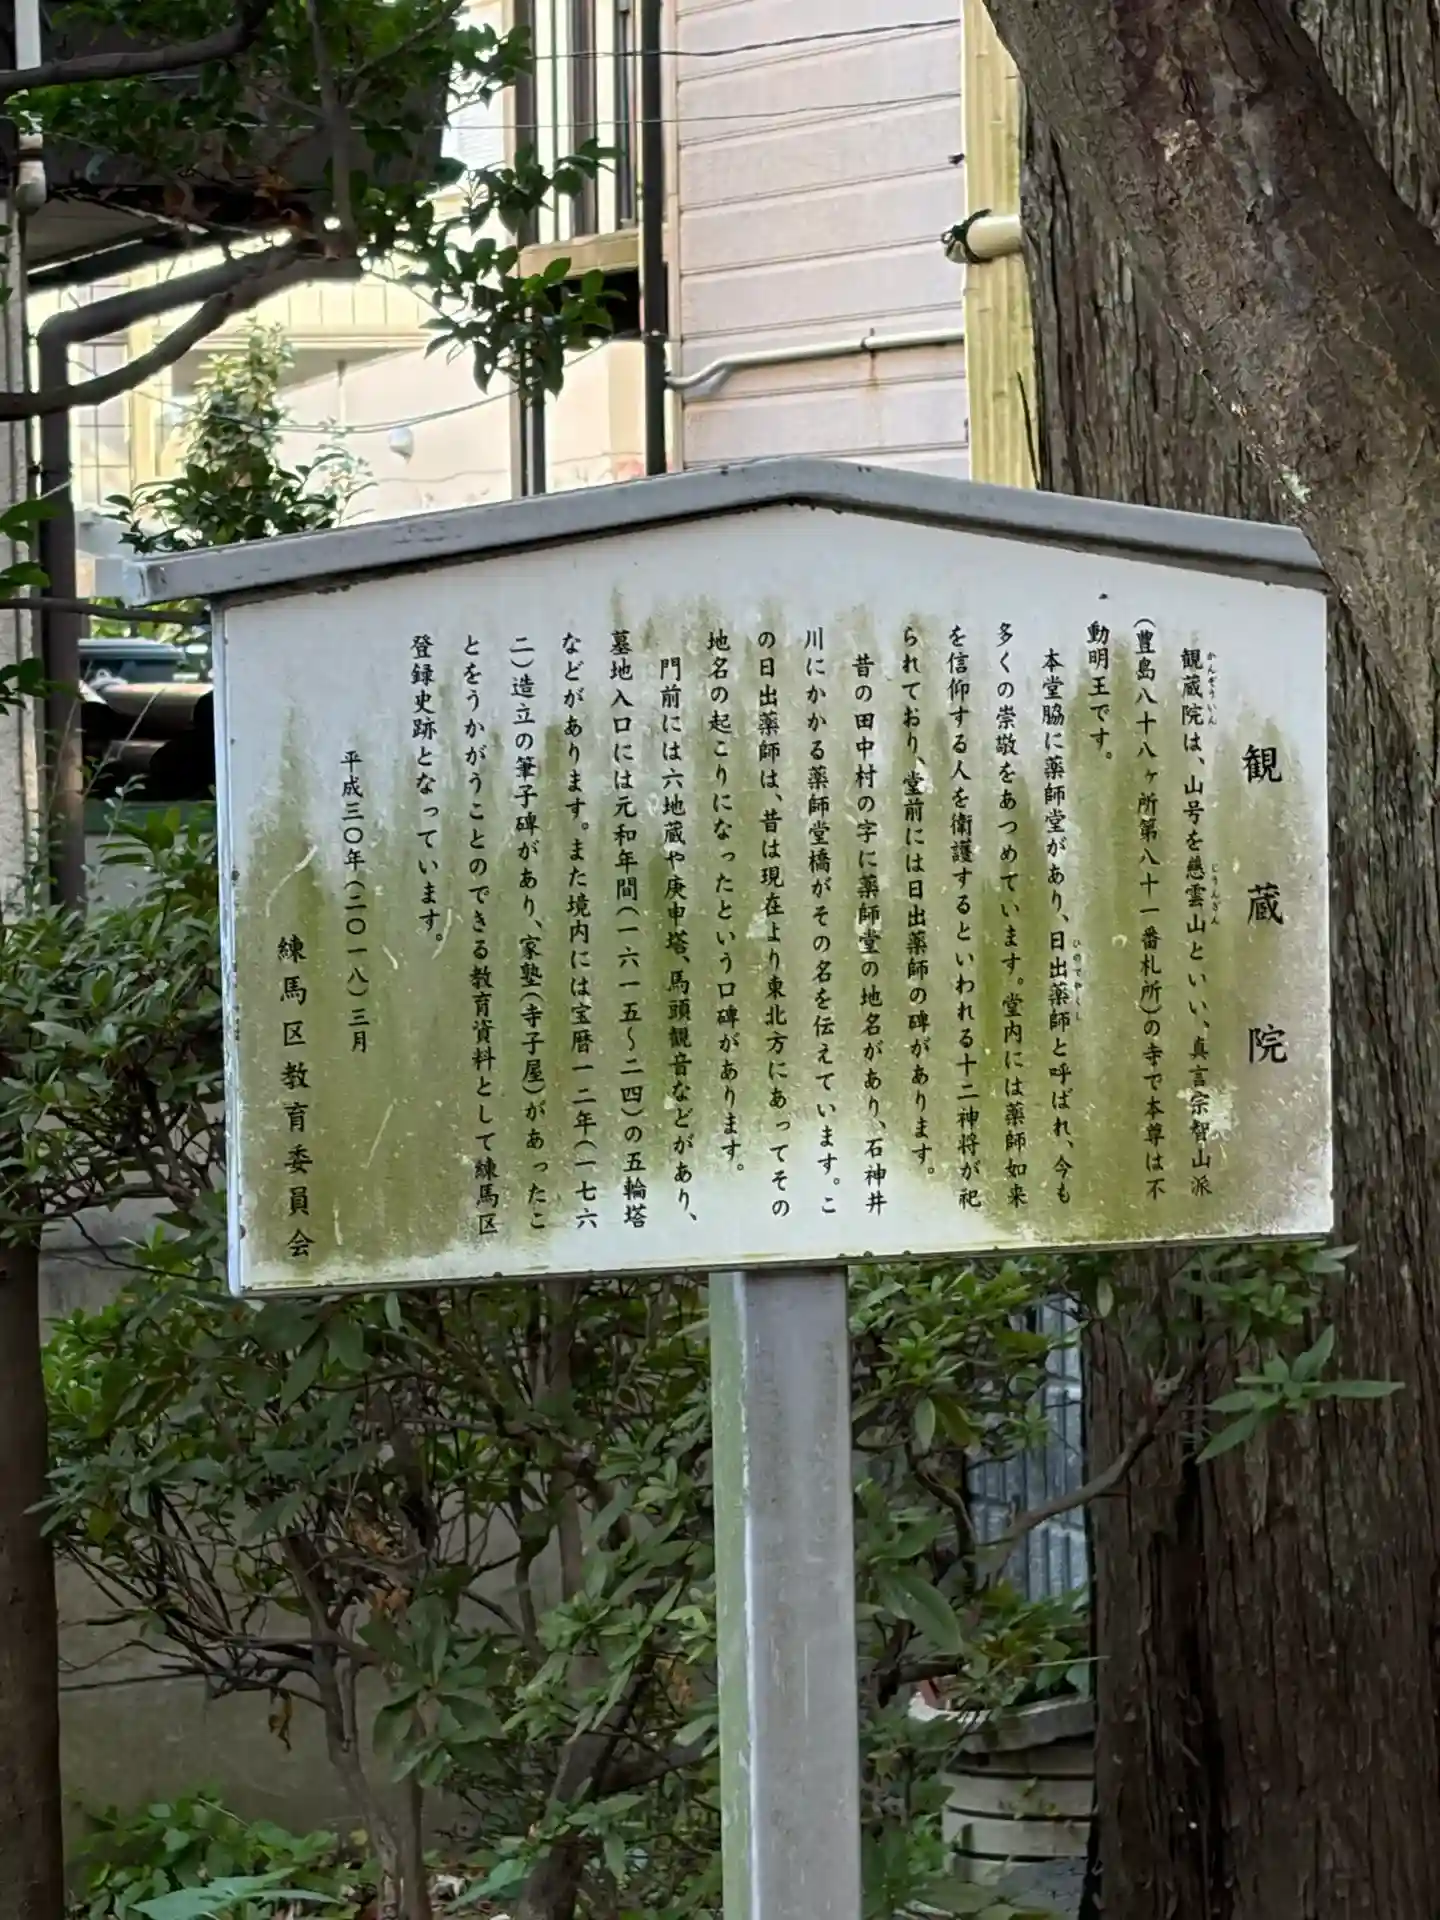 観蔵院
観蔵院は、山号を慈雲山といい、真言宗智山派
かんぞういん
じうんざん
(豊島八十八ヶ所第八十一番札所)の寺で本尊は不
動明王です。
本堂脇に薬師堂があり、日出薬師と呼ばれ、今も
ひのでやくし
多くの崇敬をあつめています。堂内には薬師如来
を信仰する人を衛護するといわれる十二神将が祀
られており、堂前には日出薬師の碑があります。
昔の田中村の字に薬師堂の地名があり、石神井
川にかかる薬師堂橋がその名を伝えています。こ
の日出薬師は、昔は現在より東北方にあってその
地名の起こりになったという口碑があります。
門前には六地蔵や庚申塔、馬頭観音などがあり、
墓地入口には元和年間(一六一五〜二四)の五輪塔
などがあります。また境内には宝暦一二年(一七六
二)造立の筆子碑があり、家塾(寺子屋)があったこ
とをうかがうことのできる教育資料として練馬区
登録史跡となっています。
平成三〇年(二〇一八)三月
練馬区教育委員会